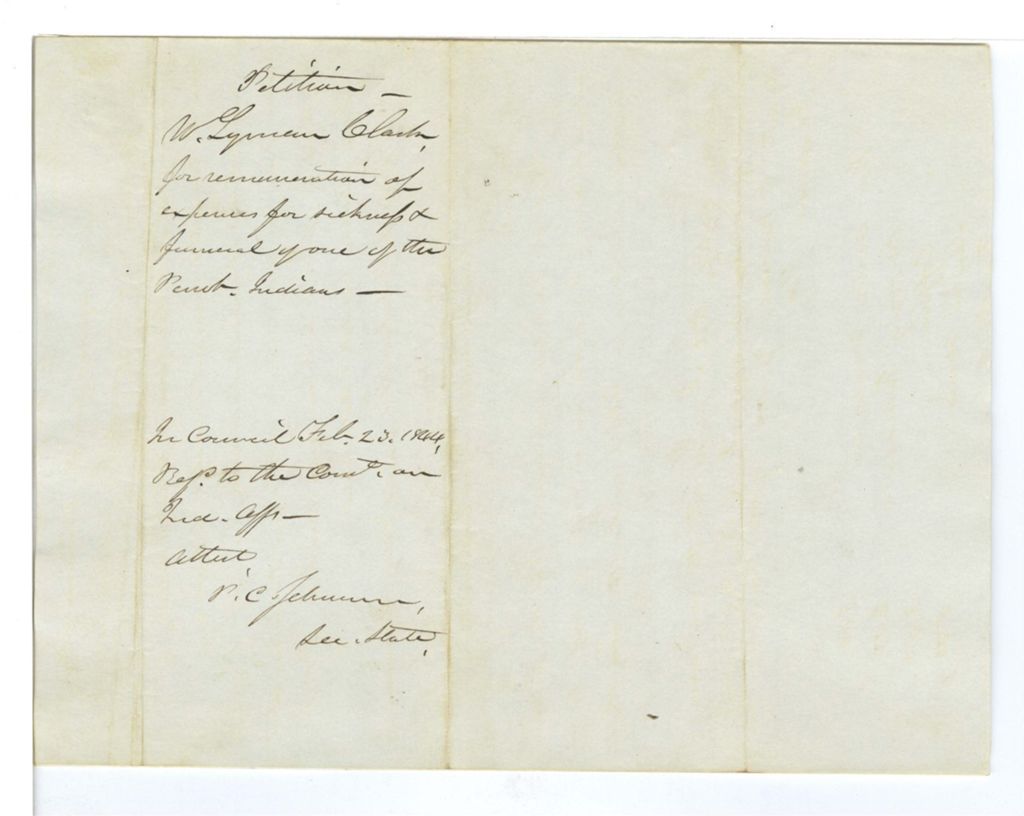 Petition —
W. Lyman Clark,
for remuneration of
expenses for sickness &
funeral of one of the
Penob. Indians —
In Council Feb. 23. 1844,
Refd. to the Comtt. on
Ind. Affs —
Attest,
P. C. Johnson,
Sec. State,